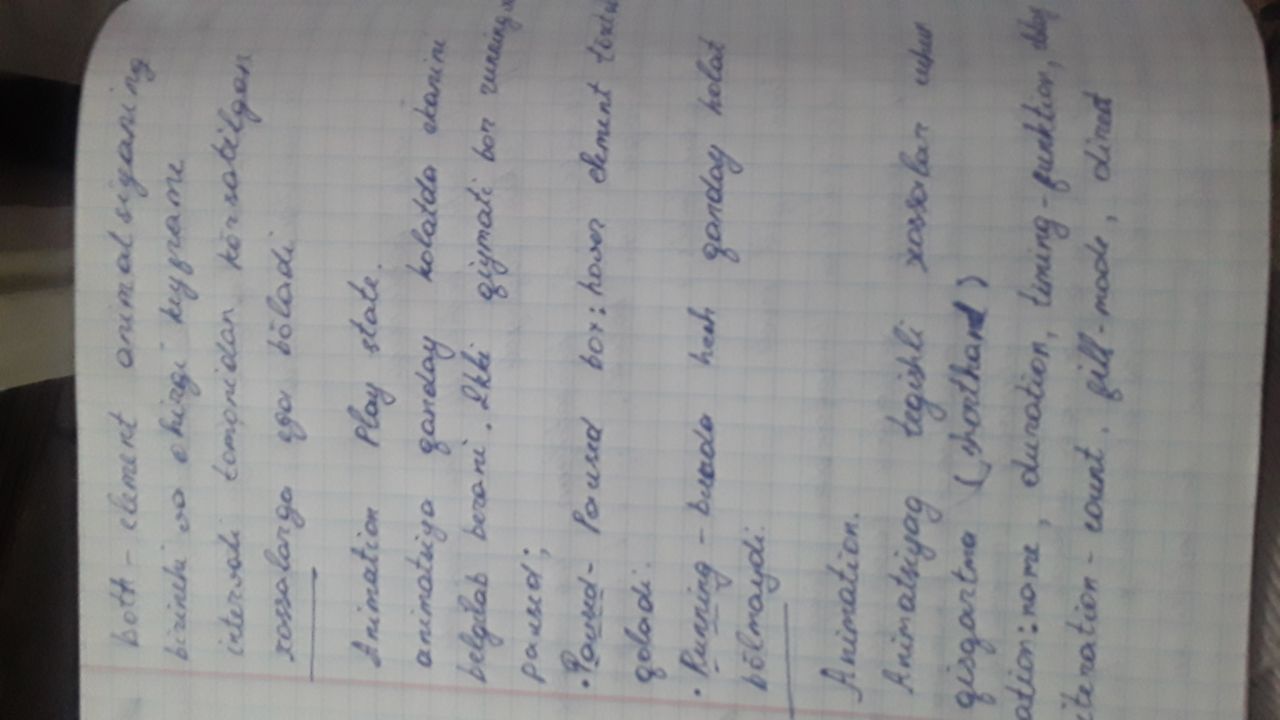 both - element animatsiyaning
birinchi va ohirgi keyframe
intervali tomonidan kõrsatilgan
xossalarga ega bõladi
Animation Play state.
animatsiya qanday holatda ekanini
belgilab beradi. 2kki qiymati bor running
paused;
• Paused - Paused box:hover element
qoladi.
• Running - bunda hech qanday holat
bõlmaydi.
Animation.
Animatsiyag tegishli xossalar uchun
qisqartma (shorthand)
ation:name, duration, timing-funktion, delay
iteration-count, fill-mode, direct